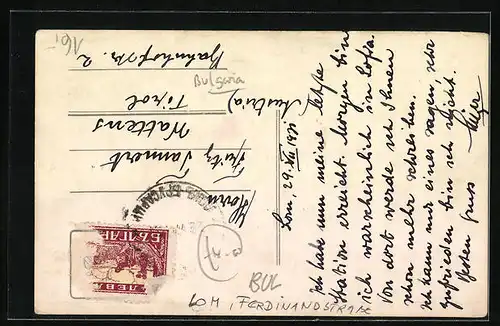 Lom, 29. XII 1931
Ich habe nun meine letzte
Station erreicht. Morgen bin
ich warscheinlich in Sofia.
Von dort werde ich Ihnen
schon mehr schreiben.
Ich kann nur eines sagen, sehr
zufrieden bin ich nicht.
Besten Gruss
Herrn
Fritz Tannert
Wattens
Tirol
(Austria)
Bahnhofstr. 2
Bulgaria
16,-
ЛЕВА
BUL
LOM, FERDINANDSTRAßE